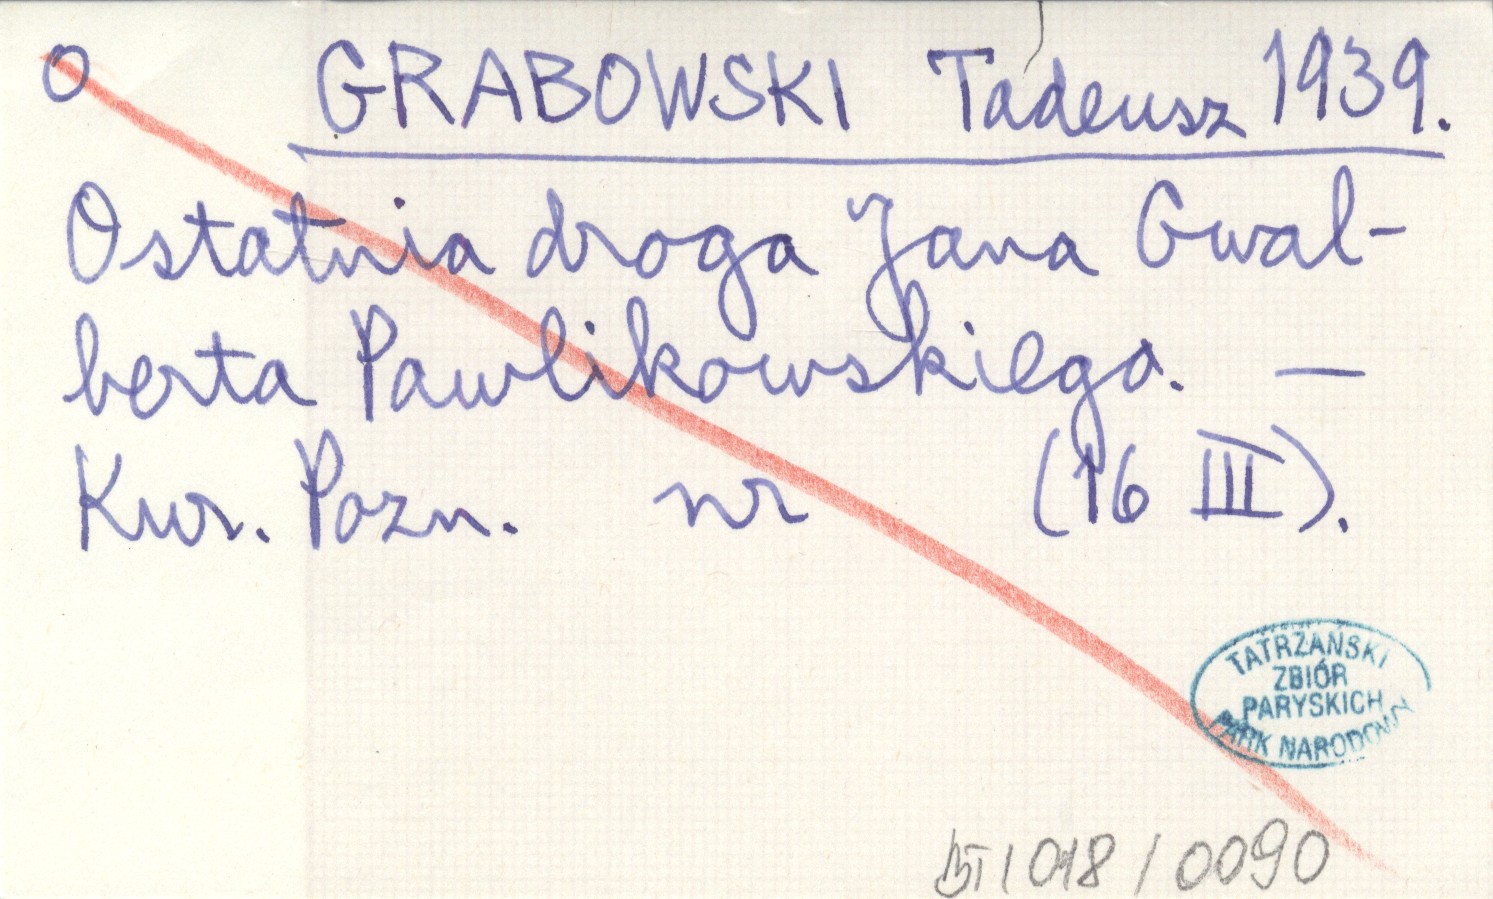 O GRABOWSKI Tadeusz 1939.
Ostatnia droga Jana Gwal-
berta Pawlikowskiego. —
Kur. Pozn. nr (16 III).
TATRZAŃSKI
ZBIÓR
PARYSKICH
PARK NARODOWY
BT / 018 / 0090